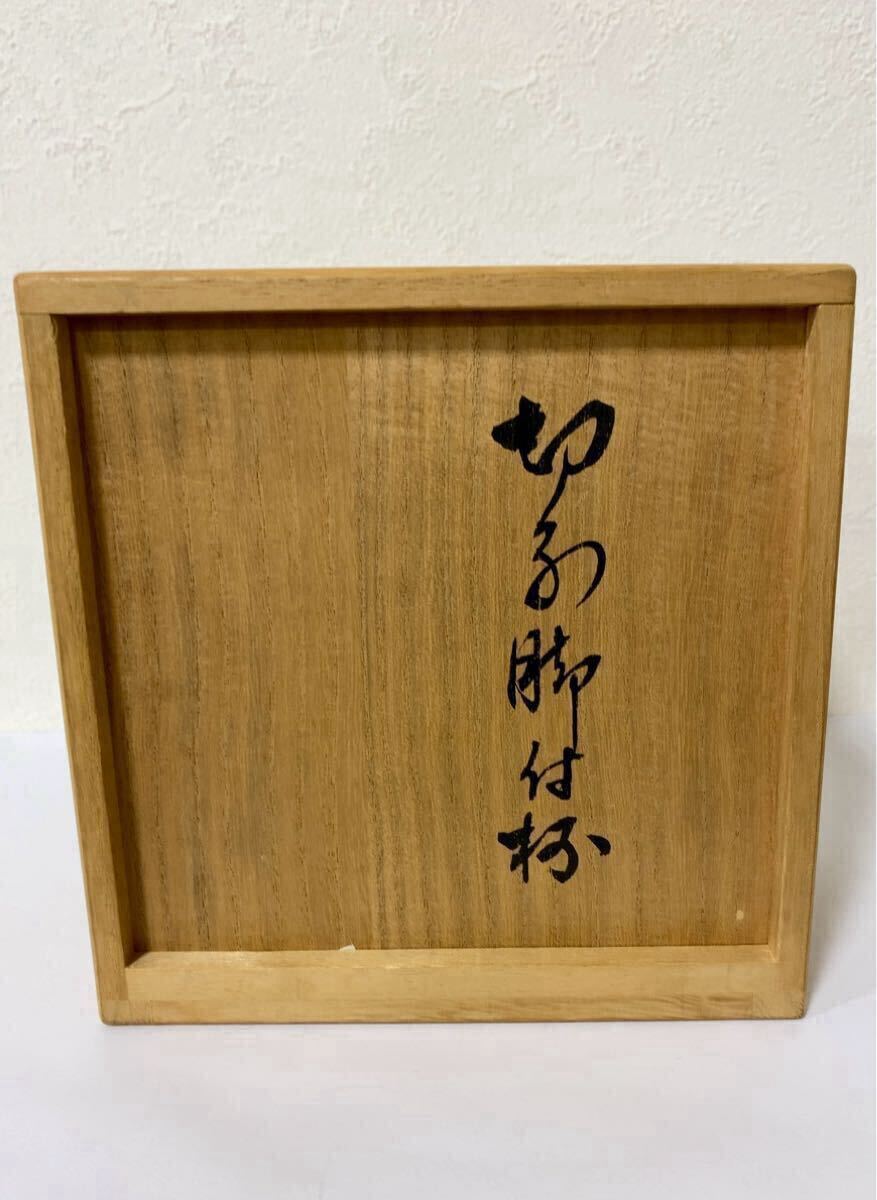 切子脚付杯